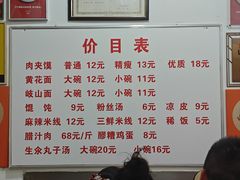 价目表
肉夹馍 普通 12元 精瘦 13元 优质 18元
黄花面 大碗 12元 小碗 11元
岐山面 大碗 12元 小碗 11元
馄饨 9元 粉丝汤 6元 凉皮 9元
麻辣米线 12元 三鲜米线 12元 稀饭 5元
腊汁肉 68元/斤 醪糟鸡蛋 8元
生汆丸子汤 大碗20元 小碗16元